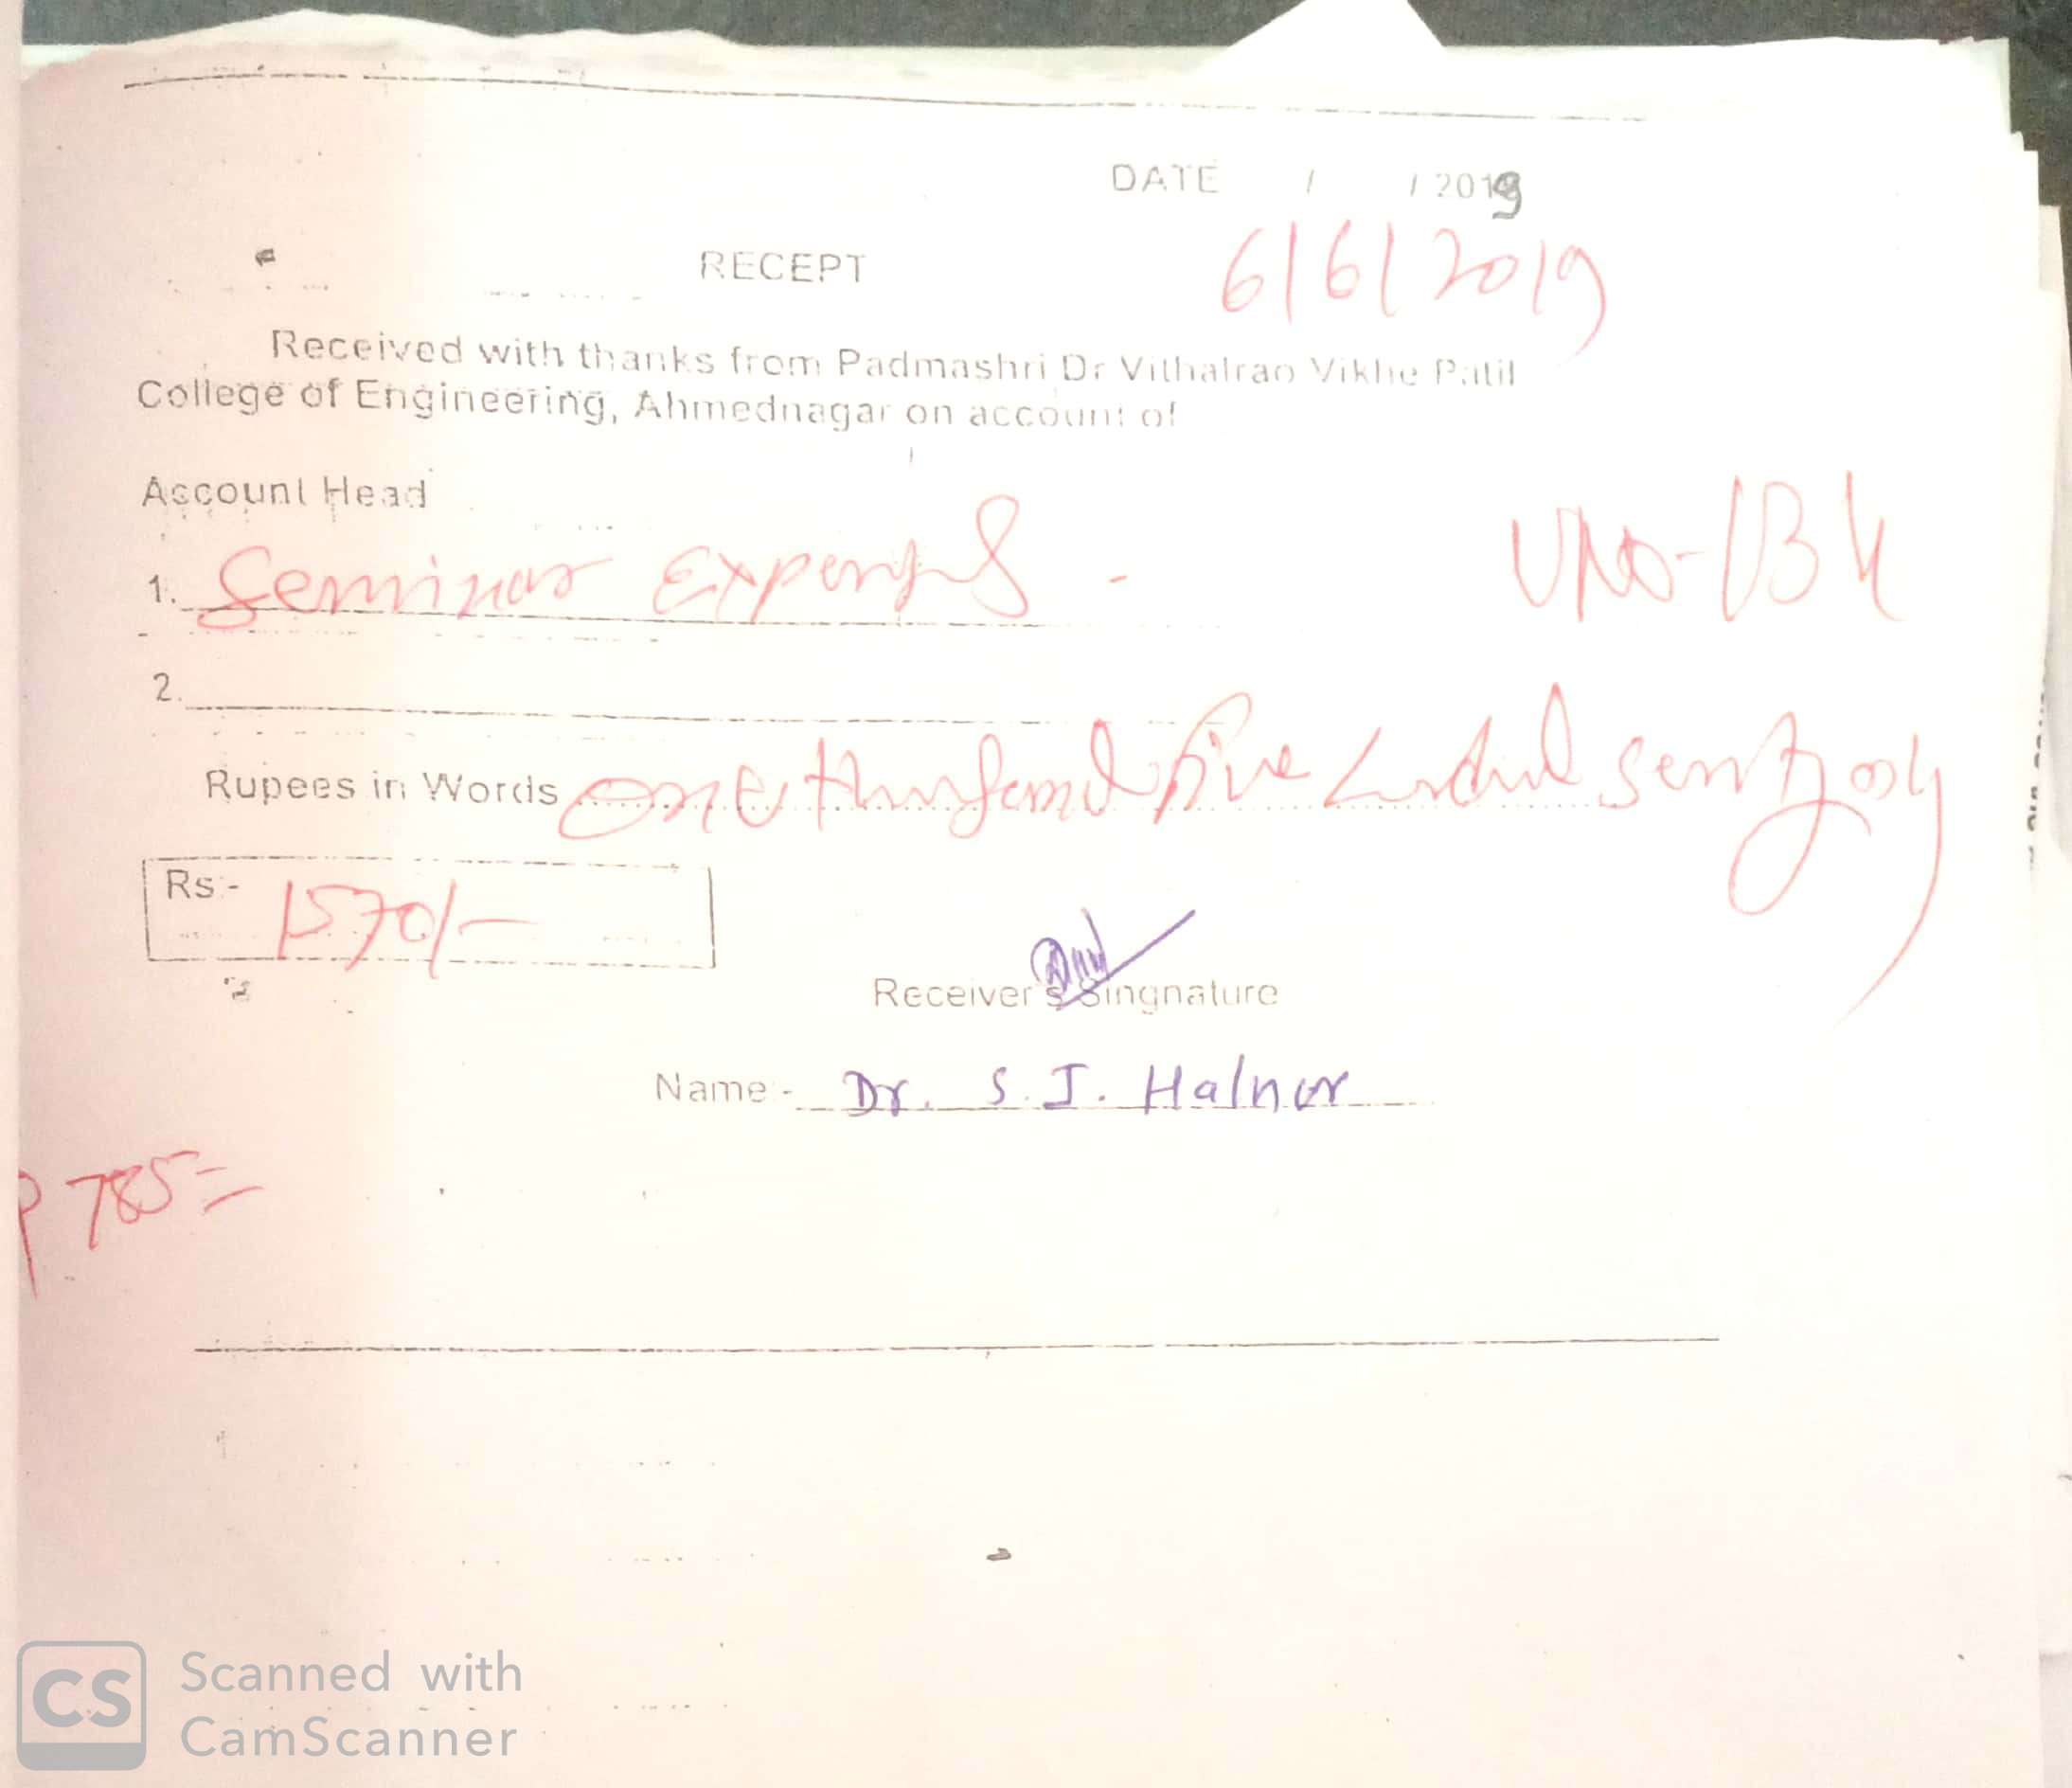 DATE / / 2019
6/6/2019
RECEPT
Received with thanks from Padmashri Dr Vithalrao Vikhe Patil
College of Engineering, Ahmednagar on account of
Account Head
1. Seminar Expenses -
VNo-
2.
Rupees in Words one thousand five hundred seventy only
Rs:- 1570/-
Receiver's Singnature
Name:- Dr. S. J. Halnor
785=
CS Scanned with
CamScanner